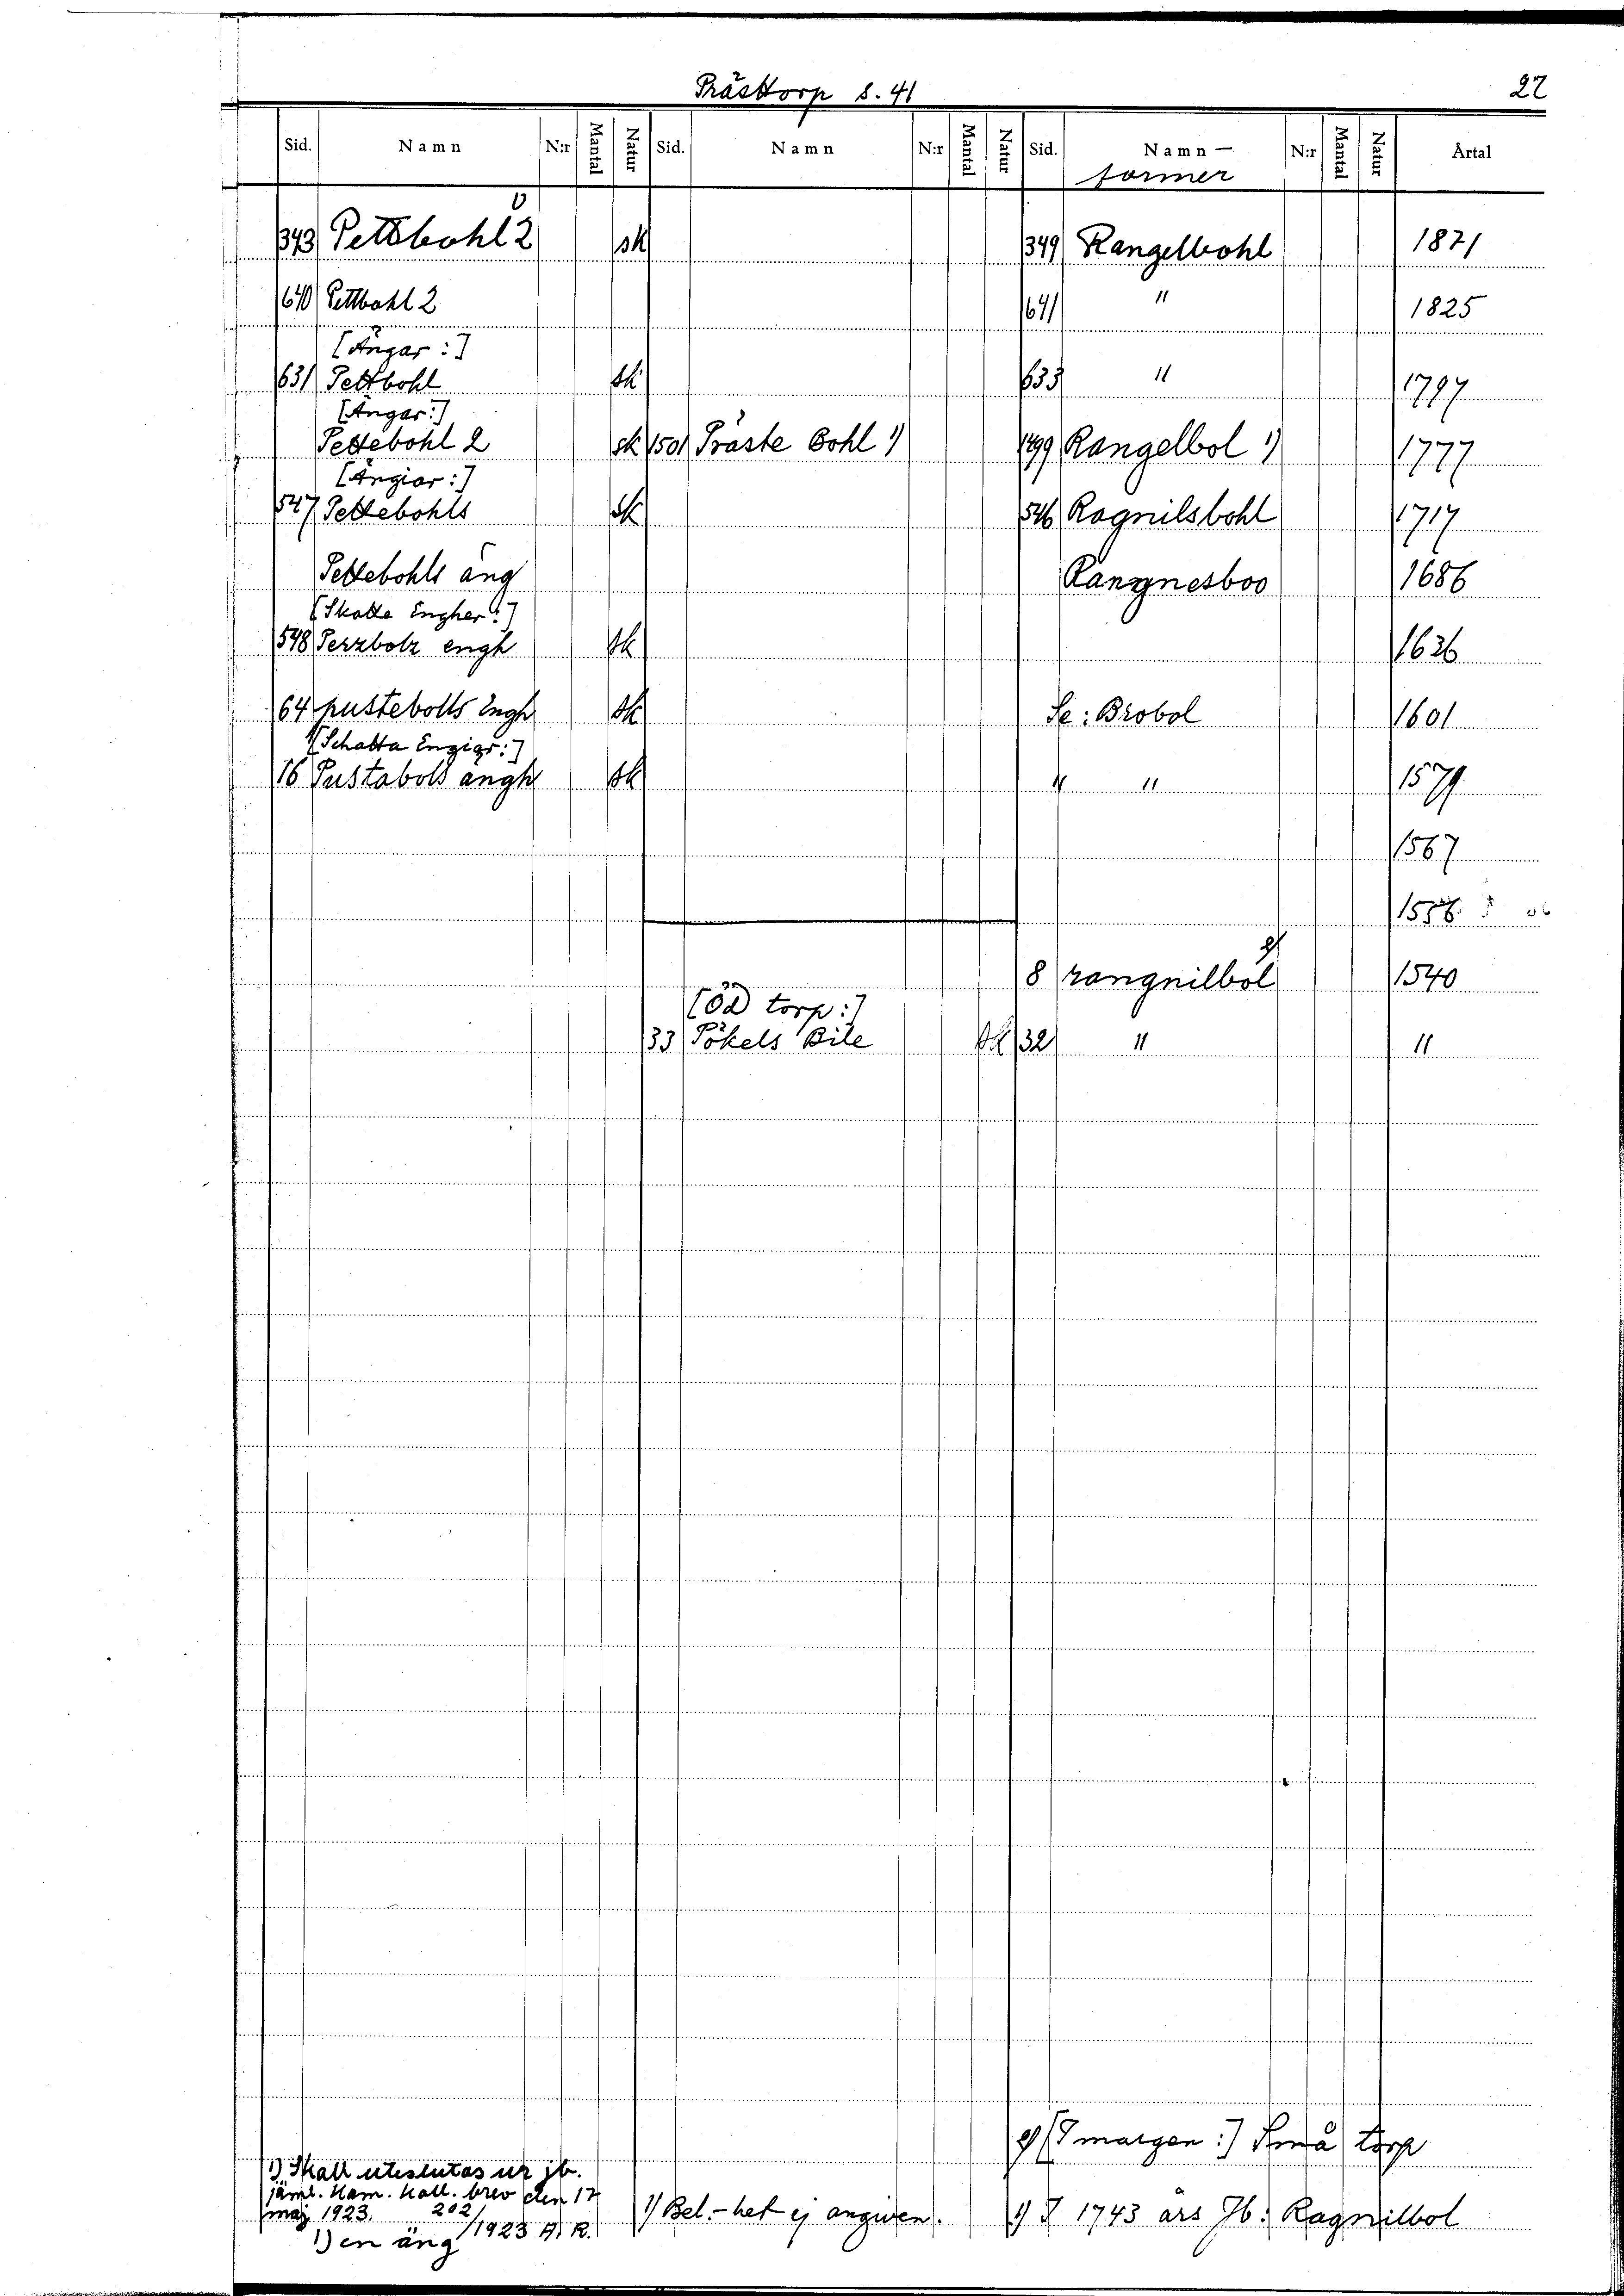 Prästtorp s. 41
27
Sid. Namn N:r Mantal Natur Sid. Namn N:r Mantal Natur Sid. Namn— N:r Mantal Natur Årtal
former
343 Pettbohl 2 sk 349 Rangelbohl 1871
640 Pettbohl 2 641 " 1825
[Ängar:]
631 Pettbohl sk 633 " 1797
[Ängar:]
Pettebohl 2 sk 1501 Präste Bohl 1) 1499 Rangelbol 1) 1777
[Ängiar:]
547 Pettebohls sk 546 Ragnilsbohl 1717
Pettebohls äng Rangnesboo 1686
[Skatte Engher:]
548 Perzbolz engh sk 1636
64 pustebolls Engh sk Se: Brobol 1601
[Schatta Engiar:]
16 Pustabols ängh sk " " 1579
1567
1556
8 rangnilbol 2) 1540
[Öd torp:]
33 Pökels Bile sk 32 " "
2) [I margen:] Små torp
1) Skall uteslutas ur jb.
jäml. Kam. koll. brev den 17
maj 1923. 202/1923 A. R.
1) en äng
1) Bel.-het ej angiven.
1) I 1743 års Jb: Ragnilbol